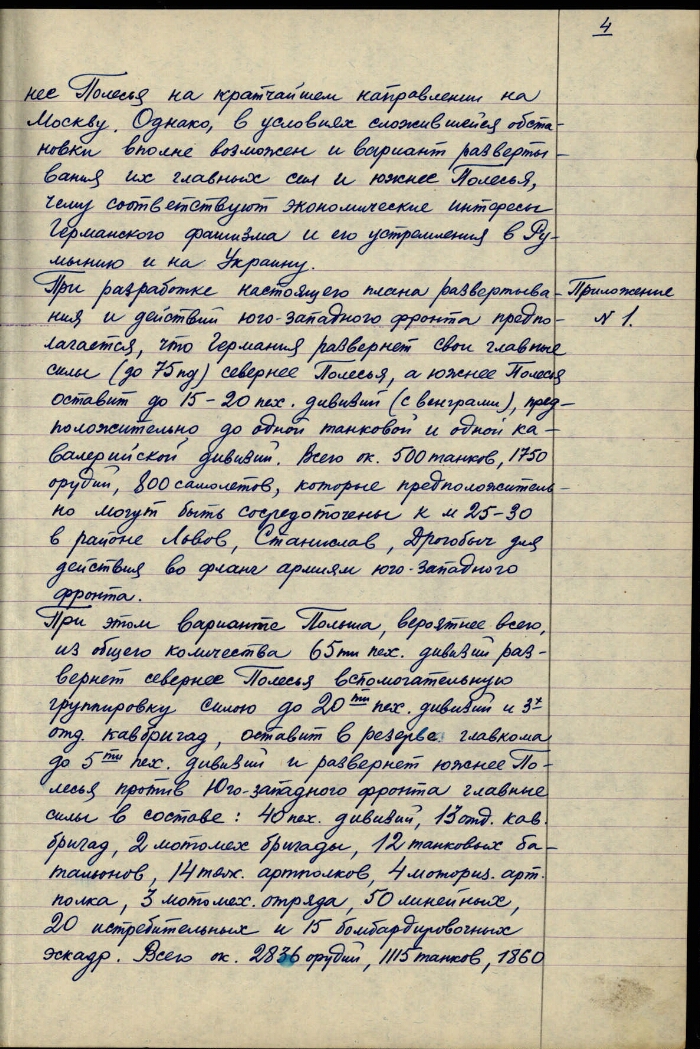 4
нее Полесья на кратчайшем направлении на
Москву. Однако, в условиях сложившейся обста-
новки вполне возможен и вариант разверты-
вания их главных сил и южнее Полесья,
чему соответствуют экономические интересы
Германского фашизма и его устремления в Ру-
мынию и на Украину.
При разработке настоящего плана развертыва-
Приложение
ния и действий юго-западного фронта предпо-
N 1.
лагается, что Германия развернет свои главные
силы (до 75 пд) севернее Полесья, а южнее Полесья
оставит до 15-20 пех. дивизий (с венграми), пред-
положительно до одной танковой и одной ка-
валерийской дивизий. Всего ок. 500 танков, 1750
орудий, 800 самолетов, которые предположитель-
но могут быть сосредоточены к м 25-30
в районе Львов, Станислав, Дрогобыч для
действия во фланг армиям юго-западного
фронта.
При этом варианте Польша, вероятнее всего,
из общего количества 65 ти пех. дивизий раз-
вернет севернее Полесья вспомогательную
группировку силою до 20 ти пех. дивизий и 3х
отд. кавбригад, оставит в резерве главкома
до 5 ти пех. дивизий и развернет южнее По-
лесья против Юго-западного фронта главные
силы в составе: 40 пех. дивизий, 13 отд. кав.
бригад, 2 мотомех бригады, 12 танковых ба-
тальонов, 14 тяж. артполков, 4 моториз. арт.
полка, 3 мотомех. отряда, 50 линейных,
20 истребительных и 15 бомбардировочных
эскадр. Всего ок. 2836 орудий, 1115 танков, 1860